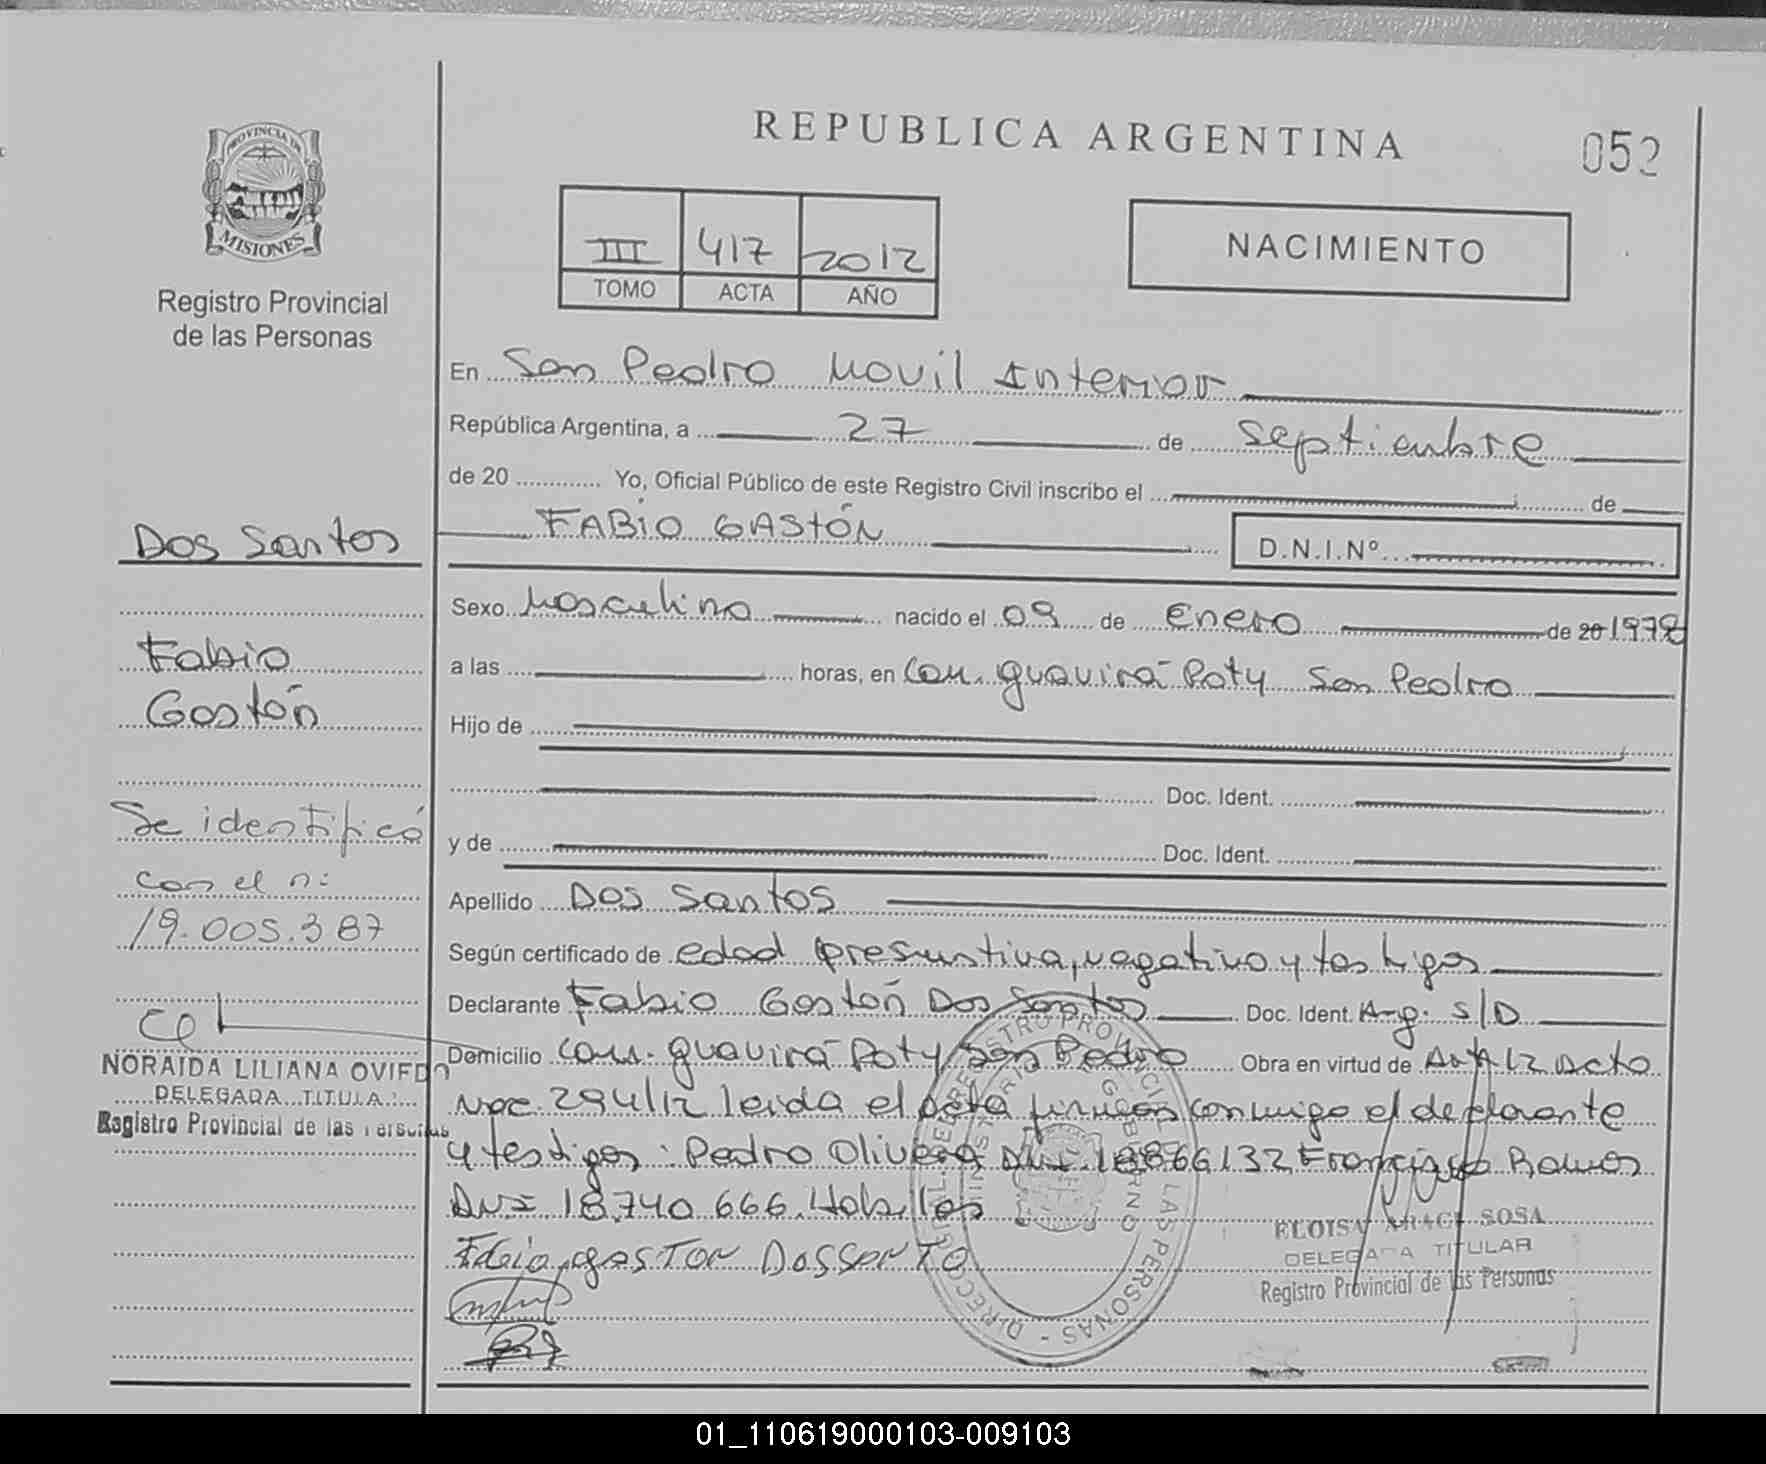 REPUBLICA ARGENTINA
052
PROVINCIA DE
MISIONES
Registro Provincial
de las Personas
III 417 2012
TOMO ACTA AÑO
NACIMIENTO
En San Pedro Movil Interior
República Argentina, a 27 de Septiembre
de 20 ............ Yo, Oficial Público de este Registro Civil inscribo el de
FABIO GASTÓN
D.N.I.Nº
Sexo Masculino nacido el 09 de Enero de 20 1978
a las horas, en Com. Guavirá Poty San Pedro
Hijo de
Doc. Ident.
y de Doc. Ident.
Apellido Dos Santos
Según certificado de edad presuntiva, negativo y testigos
Declarante Fabio Gastón Dos Santos Doc. Ident. Arg. S/D
Domicilio Com. Guavirá Poty San Pedro Obra en virtud de Acto
294/12 leida el Acta firman conmigo el declarante
y testigos: Pedro Olivera DNI 18866132 Francisco Ramos
DNI 18.740.666. Habiles
Dos Santos
Fabio
Gastón
Se identificó
con el n:
19.005.387
NORAIDA LILIANA OVIEDO
DELEGADA TITULAR
Registro Provincial de las Personas
ELOISA ARACE SOSA
DELEGADA TITULAR
Registro Provincial de las Personas
01_110619000103-009103